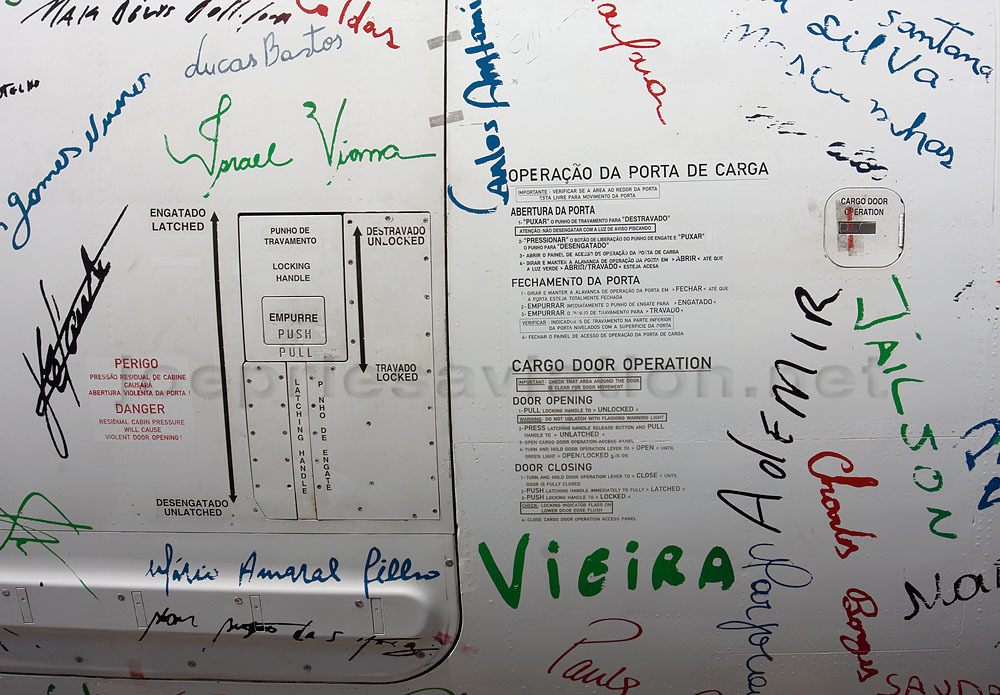 Caldas
Lucas Bastos
santana
Silva
Gomes Nunes
Israel Viana
OPERAÇÃO DA PORTA DE CARGA
IMPORTANTE: VERIFICAR SE A ÁREA AO REDOR DA PORTA
ESTA LIVRE PARA MOVIMENTO DA PORTA
ABERTURA DA PORTA
1-"PUXAR" O PUNHO DE TRAVAMENTO PARA "DESTRAVADO"
ATENÇÃO: NÃO DESENGATAR COM A LUZ DE AVISO PISCANDO
2-"PRESSIONAR" O BOTÃO DE LIBERAÇÃO DO PUNHO DE ENGATE E "PUXAR"
O PUNHO PARA "DESENGATADO"
3- ABRIR O PAINEL DE ACESSO DE OPERAÇÃO DA PORTA DE CARGA
4- GIRAR E MANTER A ALAVANCA DE OPERAÇÃO DA PORTA EM > ABRIR < ATÉ QUE
A LUZ VERDE > ABRIR/TRAVADO < ESTEJA ACESA
FECHAMENTO DA PORTA
1- GIRAR E MANTER A ALAVANCA DE OPERAÇÃO DA PORTA EM > FECHAR < ATÉ QUE
A PORTA ESTEJA TOTALMENTE FECHADA
2- EMPURRAR IMEDIATAMENTE O PUNHO DE ENGATE PARA > ENGATADO <
3- EMPURRAR O PUNHO DE TRAVAMENTO PARA > TRAVADO <
VERIFICAR: INDICADORES DE TRAVAMENTO NA PARTE INFERIOR
DA PORTA NIVELADOS COM A SUPERFICIE DA PORTA
4- FECHAR O PAINEL DE ACESSO DE OPERAÇÃO DA PORTA DE CARGA
CARGO DOOR OPERATION
IMPORTANT: CHECK THAT AREA AROUND THE DOOR
IS CLEAR FOR DOOR MOVEMENT
DOOR OPENING
1-PULL LOCKING HANDLE TO > UNLOCKED <
WARNING: DO NOT UNLATCH WITH FLASHING WARNING LIGHT
2-PRESS LATCHING HANDLE RELEASE BUTTON AND PULL
HANDLE TO > UNLATCHED <
3-OPEN CARGO DOOR OPERATION ACCESS PANEL
4-TURN AND HOLD DOOR OPERATION LEVER TO > OPEN < UNTIL
GREEN LIGHT > OPEN/LOCKED < IS ON
DOOR CLOSING
1-TURN AND HOLD DOOR OPERATION LEVER TO > CLOSE < UNTIL
DOOR IS FULLY CLOSED
2-PUSH LATCHING HANDLE IMMEDIATELY TO FULLY > LATCHED <
3-PUSH LOCKING HANDLE TO > LOCKED <
CHECK: LOCKING INDICATOR FLAGS ON
LOWER DOOR EDGE FLUSH
4-CLOSE CARGO DOOR OPERATION ACCESS PANEL
CARGO DOOR
OPERATION
ENGATADO
LATCHED
PUNHO DE
TRAVAMENTO
LOCKING
HANDLE
EMPURRE
PUSH
PULL
DESTRAVADO
UNLOCKED
TRAVADO
LOCKED
LATCHING HANDLE
PUNHO DE ENGATE
PERIGO
PRESSÃO RESIDUAL DE CABINE
CAUSARÁ
ABERTURA VIOLENTA DA PORTA !
DANGER
RESIDUAL CABIN PRESSURE
WILL CAUSE
VIOLENT DOOR OPENING !
DESENGATADO
UNLATCHED
ADEMIR
JAILSON
Charles Borges
Mário Amaral Filho
VIEIRA
Paulo